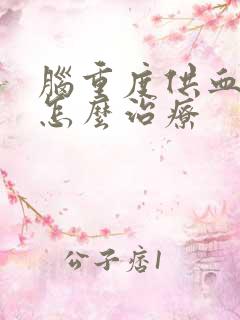 腦重度供血
怎麼治療
公子痞1